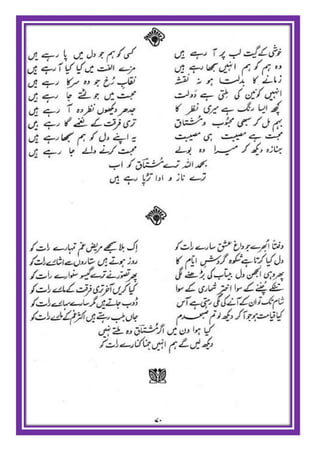 خوشی کے گیت لب پر آ رہے ہیں کسی کو ہم جو دل میں پا رہے ہیں
وہ ہم کو ہم انہیں سمجھا رہے ہیں مزے الفت میں کیا کیا آ رہے ہیں
زمانے کا ہو نہ نقشہ نقاب رخ جو وہ سرکا رہے ہیں
انہیں کونین کی ملتی ہے دولت محبت میں جو لٹتے جا رہے ہیں
کچھ ایسا رنگ ہے میری نظر کا جدھر دیکھوں نظر وہ آ رہے ہیں
بہم مل کر سبھی محبوب و مشتاق تری فرقت کے نغمے گا رہے ہیں
محبت ہے مصیبت ہی مصیبت یہ اپنے دل کو ہم سمجھا رہے ہیں
جنازہ دیکھ کر میرا وہ بولے محبت کرنے والے جا رہے ہیں
بحمد اللہ ترے مشتاق کو اب
ترے ناز و ادا تڑپا رہے ہیں
دفعتا ابھرے جو داغ عشق سارے رات کو اک بلا سمجھے مریض غم تمہارے رات کو
دل کیا کرتا ہے شکوہ گردش ایام کا روز ہوتے ہیں ستاروں سے اشارے رات کو
پھر وہی الجھن دل بیتاب کی بڑھنے لگی پھر تصور نے ترے گیسو سنوارے رات کو
کے سوا اختر شماری کے سوا کیا کریں آخر تری فرقت کے مارے رات کو
شام تک تو ان کے آنے کی لگی رہتی ہے آس ڈوب جاتے ہیں مگر سارے سہارے رات کو
کیا قیامت ہے جو آ کر دیکھ لو تم صبحدم جاں بلب رہتے ہیں اکثر غم کے مارے رات کو
کیا ہوا دن میں اگر مشتاق وہ ملتے نہیں
دیکھ لیں گے ہم انہیں جمنا کنارے رات کو
۷۰